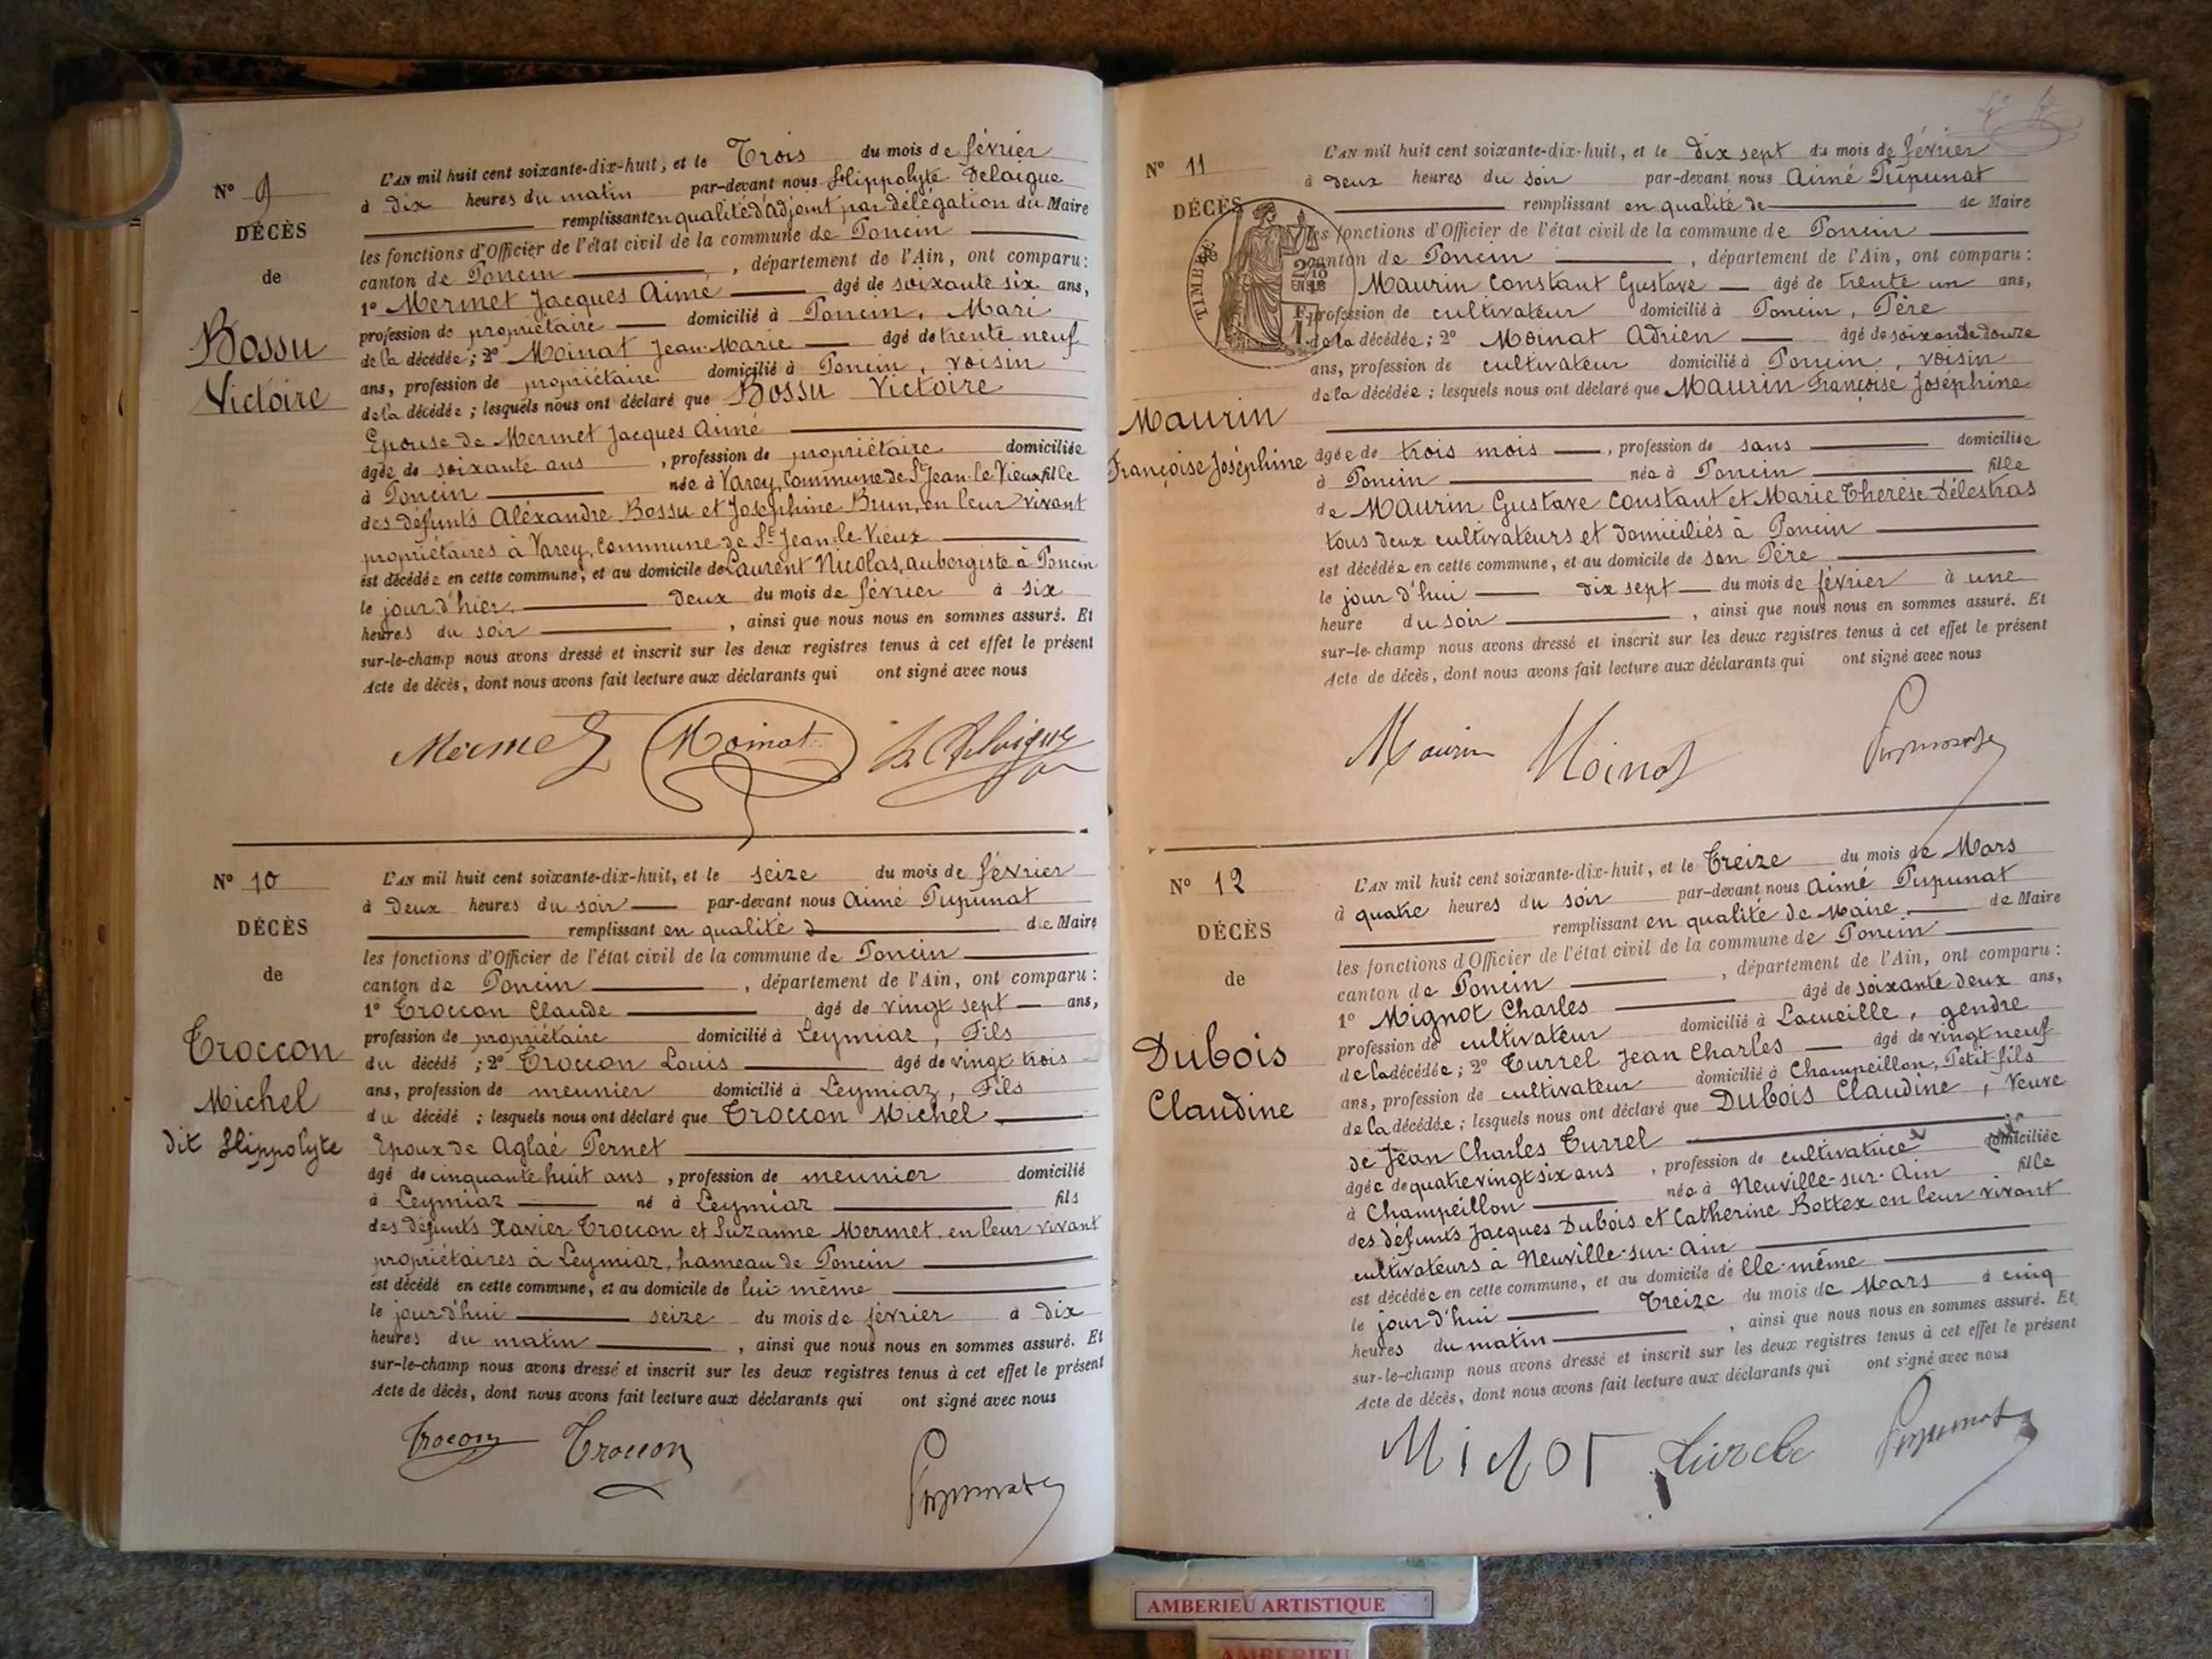 N° 9
DÉCÈS
de
Bossu
Victoire
L'AN mil huit cent soixante-dix-huit, et le Trois du mois de février
à dix heures du matin par-devant nous Hippolyte Delaigue
remplissant en qualité d'adjoint par délégation du Maire
les fonctions d'Officier de l'état civil de la commune de Poncin
canton de Poncin, département de l'Ain, ont comparu:
1° Mermet Jacques Aimé âgé de soixante six ans,
profession de propriétaire domicilié à Poncin, Mari
de la décédée; 2° Moinat Jean-Marie âgé de trente neuf
ans, profession de propriétaire domicilié à Poncin, voisin
de la décédée; lesquels nous ont déclaré que Bossu Victoire
Epouse de Mermet Jacques Aimé
âgée de soixante ans, profession de propriétaire domiciliée
à Poncin née à Varey, Commune de St Jean-le-Vieux fille
des défunts Aléxandre Bossu et Joséphine Brun, en leur vivant
propriétaires à Varey, Commune de St Jean-le-Vieux
est décédée en cette commune, et au domicile de Laurent Nicolas, aubergiste à Poncin
le jour d'hier, deux du mois de février à six
heures du soir, ainsi que nous nous en sommes assuré. Et
sur-le-champ nous avons dressé et inscrit sur les deux registres tenus à cet effet le présent
Acte de décès, dont nous avons fait lecture aux déclarants qui ont signé avec nous
Mermet Moinat H. Delaigue
N° 10
DÉCÈS
de
Troccon
Michel
dit Hippolyte
L'AN mil huit cent soixante-dix-huit, et le seize du mois de février
à deux heures du soir par-devant nous Aimé Pupunat
remplissant en qualité d de Maire
les fonctions d'Officier de l'état civil de la commune de Poncin
canton de Poncin, département de l'Ain, ont comparu:
1° Troccon Claude âgé de vingt sept ans,
profession de propriétaire domicilié à Leymiaz, Fils
du décédé; 2° Troccon Louis âgé de vingt trois
ans, profession de meunier domicilié à Leymiaz, Fils
du décédé; lesquels nous ont déclaré que Troccon Michel
Epoux de Aglaé Pernet
âgé de cinquante huit ans, profession de meunier domicilié
à Leymiaz né à Leymiaz fils
des défunts Xavier Troccon et Suzanne Mermet, en leur vivant
propriétaires à Leymiaz, hameau de Poncin
est décédé en cette commune, et au domicile de lui même
le jour d'hui seize du mois de février à dix
heures du matin, ainsi que nous nous en sommes assuré. Et
sur-le-champ nous avons dressé et inscrit sur les deux registres tenus à cet effet le présent
Acte de décès, dont nous avons fait lecture aux déclarants qui ont signé avec nous
Trocon Troccon Pupunat
N° 11
DÉCÈS
TIMBRE
Maurin
Françoise Joséphine
L'AN mil huit cent soixante-dix-huit, et le dix sept du mois de février
à deux heures du soir par-devant nous Aimé Pupunat
remplissant en qualité de de Maire
les fonctions d'Officier de l'état civil de la commune de Poncin
canton de Poncin, département de l'Ain, ont comparu:
Maurin Constant Gustave âgé de trente un ans,
profession de cultivateur domicilié à Poncin, Père
de la décédée; 2° Moinat Adrien âgé de soixante douze
ans, profession de cultivateur domicilié à Poncin, voisin
de la décédée; lesquels nous ont déclaré que Maurin Françoise Joséphine
âgée de trois mois, profession de sans domiciliée
à Poncin née à Poncin fille
de Maurin Gustave Constant et Marie Therèse Délestras
tous deux cultivateurs et domiciliés à Poncin
est décédée en cette commune, et au domicile de son Père
le jour d'hui dix sept du mois de février à une
heure du soir, ainsi que nous nous en sommes assuré. Et
sur-le-champ nous avons dressé et inscrit sur les deux registres tenus à cet effet le présent
Acte de décès, dont nous avons fait lecture aux déclarants qui ont signé avec nous
Maurin Moinat Pupunat
N° 12
DÉCÈS
de
Dubois
Claudine
L'AN mil huit cent soixante-dix-huit, et le Treize du mois de Mars
à quatre heures du soir par-devant nous Aimé Pupunat
remplissant en qualité de Maire de Maire
les fonctions d'Officier de l'état civil de la commune de Poncin
canton de Poncin, département de l'Ain, ont comparu:
1° Mignot Charles âgé de soixante deux ans,
profession de cultivateur domicilié à Lacueille, gendre
de la décédée; 2° Turrel Jean Charles âgé de vingt neuf
ans, profession de cultivateur domicilié à Champeillon, Petit-fils
de la décédée; lesquels nous ont déclaré que Dubois Claudine, Veuve
de Jean Charles Turrel
âgée de quatre vingt six ans, profession de cultivatrice domiciliée
à Champeillon née à Neuville-sur-Ain fille
des défunts Jacques Dubois et Catherine Bottex en leur vivant
cultivateurs à Neuville-sur-Ain
est décédée en cette commune, et au domicile de elle-même
le jour d'hui Treize du mois de Mars à cinq
heures du matin, ainsi que nous nous en sommes assuré. Et
sur-le-champ nous avons dressé et inscrit sur les deux registres tenus à cet effet le présent
Acte de décès, dont nous avons fait lecture aux déclarants qui ont signé avec nous
Pupunat
AMBERIEU ARTISTIQUE
AMBERIEU